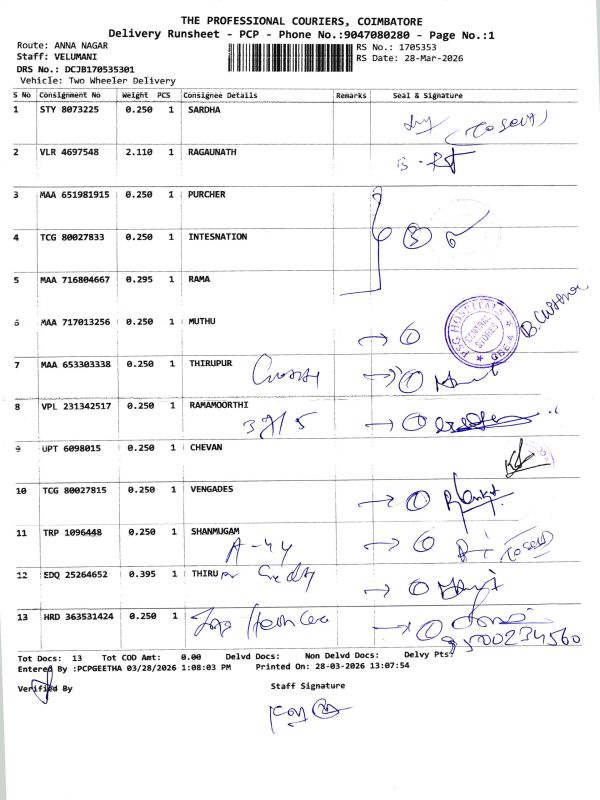 THE PROFESSIONAL COURIERS, COIMBATORE
Delivery Runsheet - PCP - Phone No.:9047080280 - Page No.:1
Route: ANNA NAGAR
Staff: VELUMANI
DRS No.: DCJB170535301
Vehicle: Two Wheeler Delivery
RS No.: 1705353
RS Date: 28-Mar-2026
S No Consignment No Weight PCS Consignee Details Remarks Seal & Signature
1 STY 8073225 0.250 1 SARDHA
2 VLR 4697548 2.110 1 RAGAUNATH
3 MAA 651981915 0.250 1 PURCHER
4 TCG 80027833 0.250 1 INTESNATION
5
5 MAA 716804667 0.295 1 RAMA
6 MAA 717013256 0.250 1 MUTHU
PSG HOSPITALS
CENTRAL STORES
7 MAA 653303338 1 THIRUPUR
8 VPL 231342517 0.250 1 RAMAMOORTHI
9 UPT 6098015 0.250 1 CHEVAN
10 TCG 80027815 0.250 1 VENGADES
11 TRP 1096448 0.250 1 SHANMUGAM
A-44
12 EDQ 25264652 0.395 1 THIRU
13 HRD 363531424 0.250 1
9500234560
Tot Docs: 13 Tot COD Amt: 0.00 Delvd Docs: Non Delvd Docs: Delvy Pts:
Entered By :PCPGEETHA 03/28/2026 1:08:03 PM Printed On: 28-03-2026 13:07:54
Verified By
Staff Signature